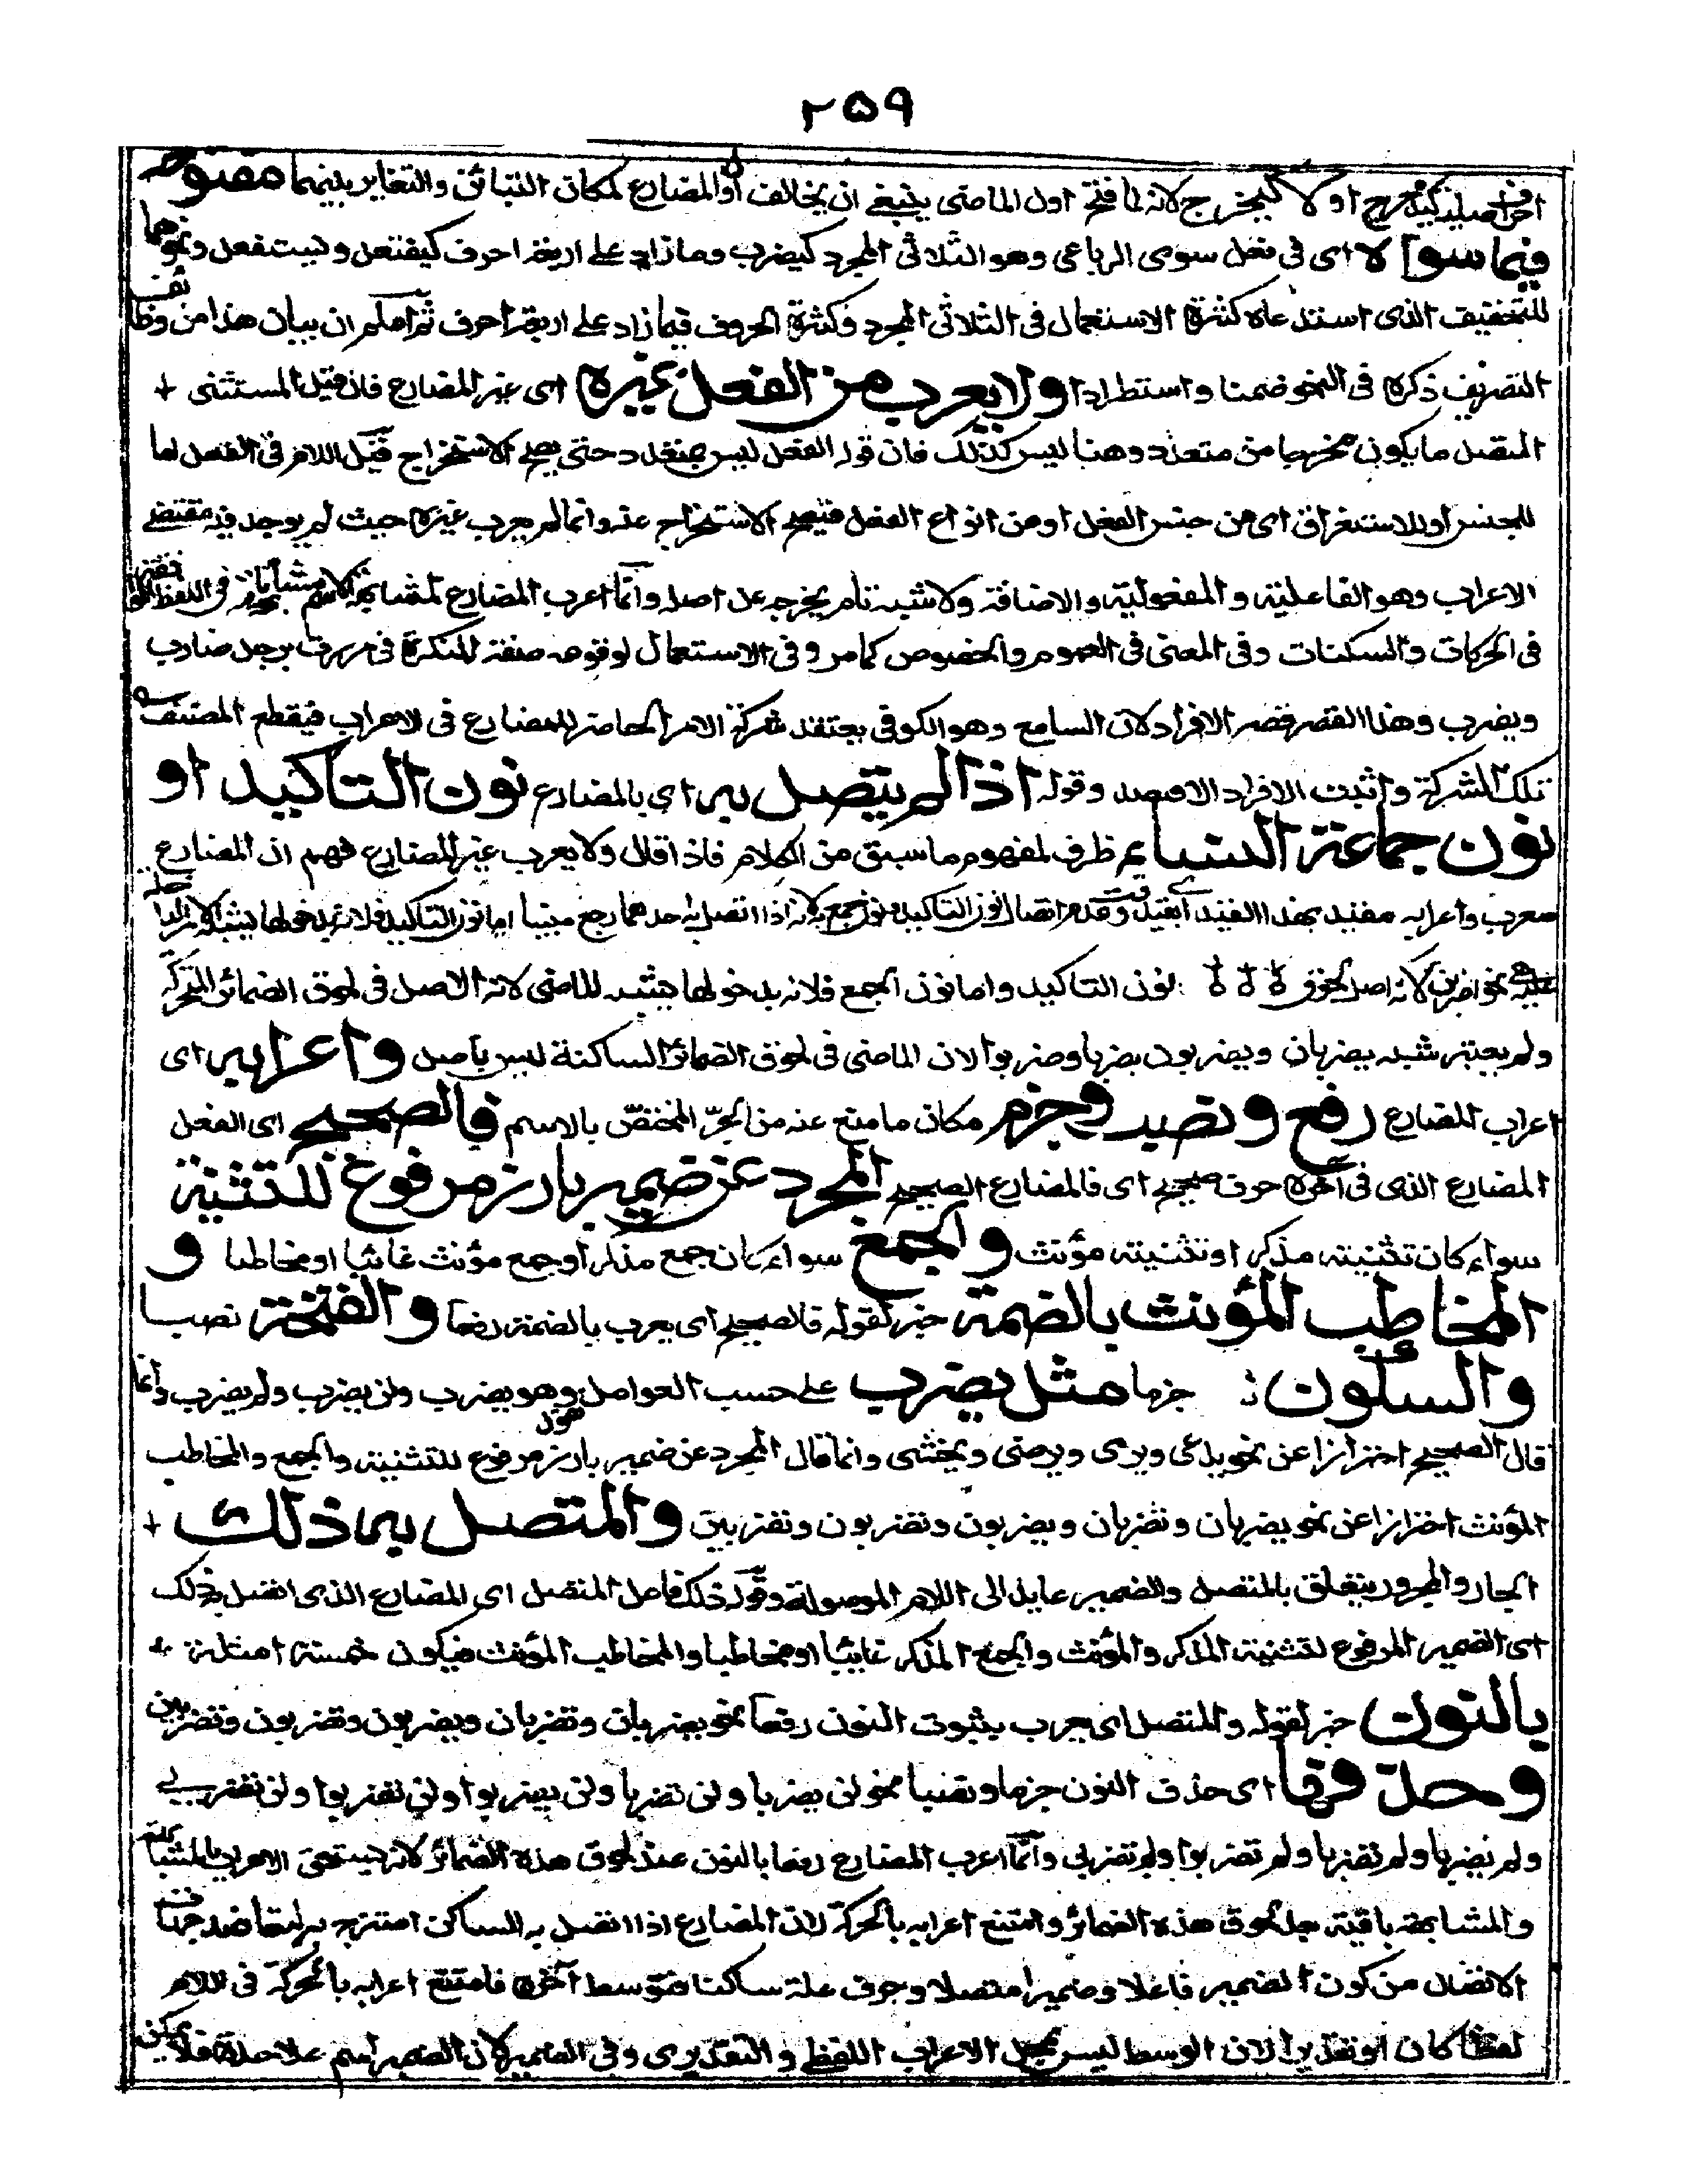 ۲۵۹
احرف اصلية كيدحرج او لا كيخرج لانه لما فتح اول الماضى ينبغى ان يخالف اول المضارع لمكان التباين والتغاير بينهما مفتوحة
فيما سواه اى فى فعل سوى الرباعى وهو الثلاثى المجرد كيضرب وما زاد على اربعة احرف كيفتعل و يستفعل ونحوهما
للتخفيف الذى استدعاه كثرة الاستعمال فى الثلاثى المجرد وكثرة الحروف فيما زاد على اربعة احرف ثم اعلم ان بيان هذا من وظائف
التصريف ذكره فى النحو ضمنا واستطرادا ولا يعرب من الفعل غيره اى غير المضارع فان قيل المستثنى
المتصل ما يكون مخرجا من متعدد وهنا ليس كذلك فان قوله الفعل ليس بمتعدد حتى يصح الاستخراج قيل اللام فى الفعل اما
للجنس او للاستغراق اى من جنس الفعل او من انواع الفعل فيصح الاستخراج عنه وانما لم يعرب غيره حيث لم يوجد فيه مقتضى
الاعراب وهو الفاعلية والمفعولية والاضافة ولا شبه تام يخرجه عن اصله وانما اعرب المضارع لمشابهته الاسم مشابهة تامة فى اللفظ
فى الحركات والسكنات وفى المعنى فى العموم والخصوص كما مر وفى الاستعمال لوقوعه صفة للنكرة فى مررت برجل ضارب
ويضرب وهذا القصر قصر الافراد لان السامع وهو الكوفى يعتقد شركة الامر الحاضر للمضارع فى الاعراب فيقطع المصنف
تلك الشركة واثبت الافراد وقوله اذا لم يتصل به اى بالمضارع نون التاكيد او
نون جماعة النساء ظرف لمفهوم ما سبق من الكلام فاذا قال ولا يعرب غير المضارع فهم ان المضارع
معرب واعرابه مقيد بهذا القيد اتصال نون التاكيد ونون جمع لانه اذا اتصل به احدهما رجع مبنيا اما نون التاكيد فلانه بدخولها
عليه نحو نون التاكيد واما نون الجمع فلانه بدخولها يشبه الماضى لانه الاصل فى لحوق الضمائر المتحركة
ولم يعتبر شبه يضربان ويضربون بضربا وضربوا لان الماضى فى لحوق الضمائر الساكنة ليس باصل واعرابه اى
اعراب المضارع رفع ونصب وجزم مكان ما منع عنه من الجر المختص بالاسم فالصحيح اى الفعل
المضارع الذى فى آخره حرف صحيح اى فالمضارع الصحيح المجرد عن ضمير بارز مرفوع للتثنية
سواء كان تثنية مذكر او تثنية مؤنث والجمع سواء كان جمع مذكر او جمع مؤنث غائبا او مخاطبا و
المخاطب المؤنث بالضمة خبر لقوله فالصحيح اى يعرب بالضمة رفعا والفتحة نصبا
والسكون جزما مثل يضرب على حسب العوامل وهو يضرب ولن يضرب ولم يضرب وانما
قال الصحيح احترازا عن نحو يدعى ويرى ويرضى ويخشى وانما قال المجرد عن ضمير بارز مرفوع للتثنية والجمع والمخاطب
المؤنث احترازا عن نحو يضربان وتضربان ويضربون وتضربون وتضربين والمتصل به ذلك
الجار والمجرور يتعلق بالمتصل والضمير عايد الى اللام الموصولة وقوله ذلك فاعل المتصل اى المضارع الذى اتصل به ذلك
اى الضمير المرفوع لتثنية المذكر والمؤنث والجمع المذكر غائبا او مخاطبا والمخاطب المؤنث فيكون خمسة امثلة
بالنون خبر لقوله والمتصل اى يعرب بثبوت النون رفعا نحو يضربان وتضربان ويضربون وتضربون وتضربين
وحذفها اى حذف النون جزما ونصبا نحو لن يضربا ولن تضربا ولن يضربوا ولن تضربوا ولن تضربى
ولم يضربا ولم تضربا ولم تضربوا ولم تضربى وانما اعرب المضارع رفعا بالنون عند لحوق هذه الضمائر لانه يستحق الاعراب بالمشابهة
والمشابهة باقية بعد لحوق هذه الضمائر وامتنع اعرابه بالحركة لان المضارع اذا اتصل به الساكن امتزج به
الاتصال من كون الضمير فاعلا وضميرا متصلا وحرف علة ساكنا فتوسط آخره فامتنع اعرابه بالحركة فى اللام
لفظا كان او تقديرا لان الوسط ليس بمحل الاعراب اللفظى والتقديرى وفى الضمير لان الضمير اسم على حدة فلا يمكن